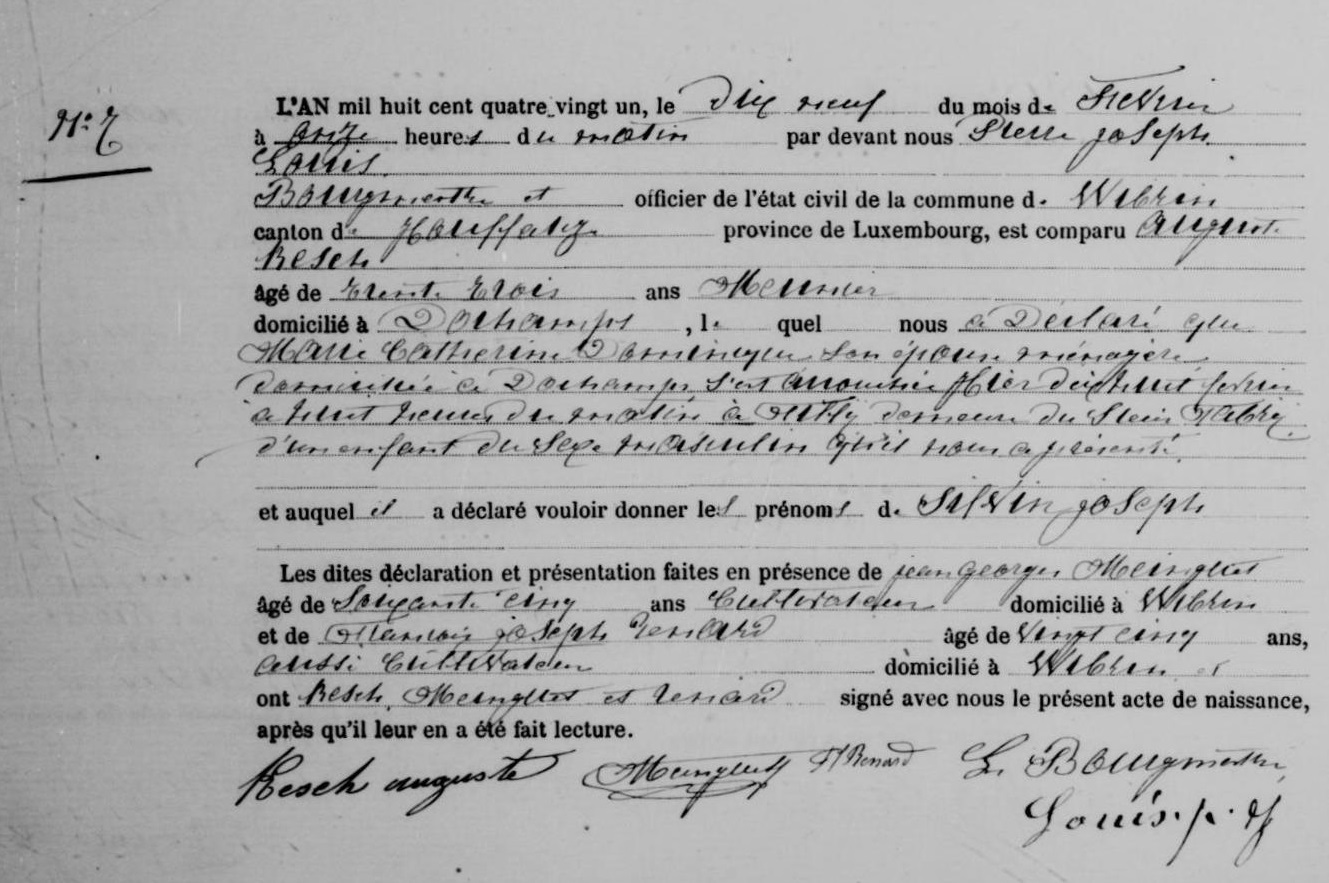 N° 7
L'AN mil huit cent quatre vingt un, le Dix neuf du mois de Fevrier
à onze heures du matin par devant nous Pierre joseph
Louis
Bourgmestre et officier de l'état civil de la commune de Wibrin
canton de Houffalize province de Luxembourg, est comparu August
Resch
âgé de trente trois ans Meunier
domicilié à Dochamps, le quel nous a Déclaré que
Marie Catherine Dominique son épouse ménagère
domiciliée à Dochamps s'est accouchée Hier dix huit fevrier
à huit heures du matin à demeure du Sieur
d'un enfant du Sexe masculin qu'il nous a présenté
et auquel il a déclaré vouloir donner les prénoms de Silvin joseph
Les dites déclaration et présentation faites en présence de jean georges Meinguet
âgé de Soixante cinq ans Cultivateur domicilié à Wibrin
et de joseph Renard âgé de Vingt cinq ans,
aussi Cultivateur domicilié à Wibrin et
ont Resch, Meinguet et renard signé avec nous le présent acte de naissance,
après qu'il leur en a été fait lecture.
Resch auguste Meinguet Renard L. Bourgmestre,
Louis. p. j